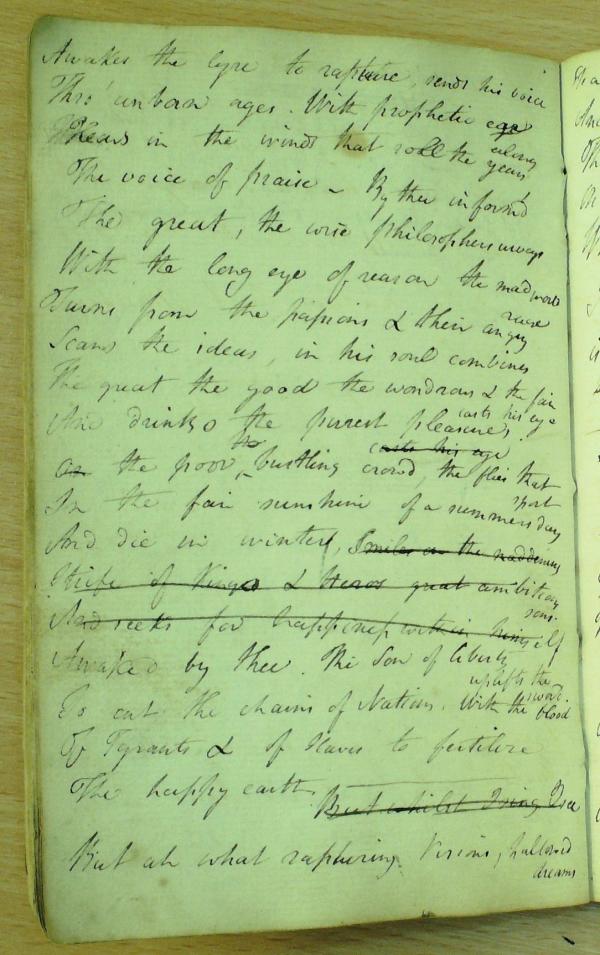 Awakes the lyre to rapture, sends his voice
Thro' unborn ages. With prophetic ear
Hears in the winds that roll the years along
The voice of praise - By thee informd
The great, the wise philosophers surveys
With the long eye of reason the mad world
Turns from the passions & their angry rage
Scans the ideas, in his soul combines
The great the good the wondrous & the fair
And drinks the purest pleasures, casts his eye
on the poor, bustling crowd, the flies that sport
In the fair sunshine of a summers day
And die in winter, Smiles on the maddening
Strife of Kings & Heros great ambitions sons
And seeks for happiness within himself
Awaked by thee. The Son of liberty uplifts the sword
To cut the chains of Nations. With the blood
Of Tyrants & of slaves to fertilize
The happy earth. But whilst
But ah what rapturing Visions, hallowed dreams